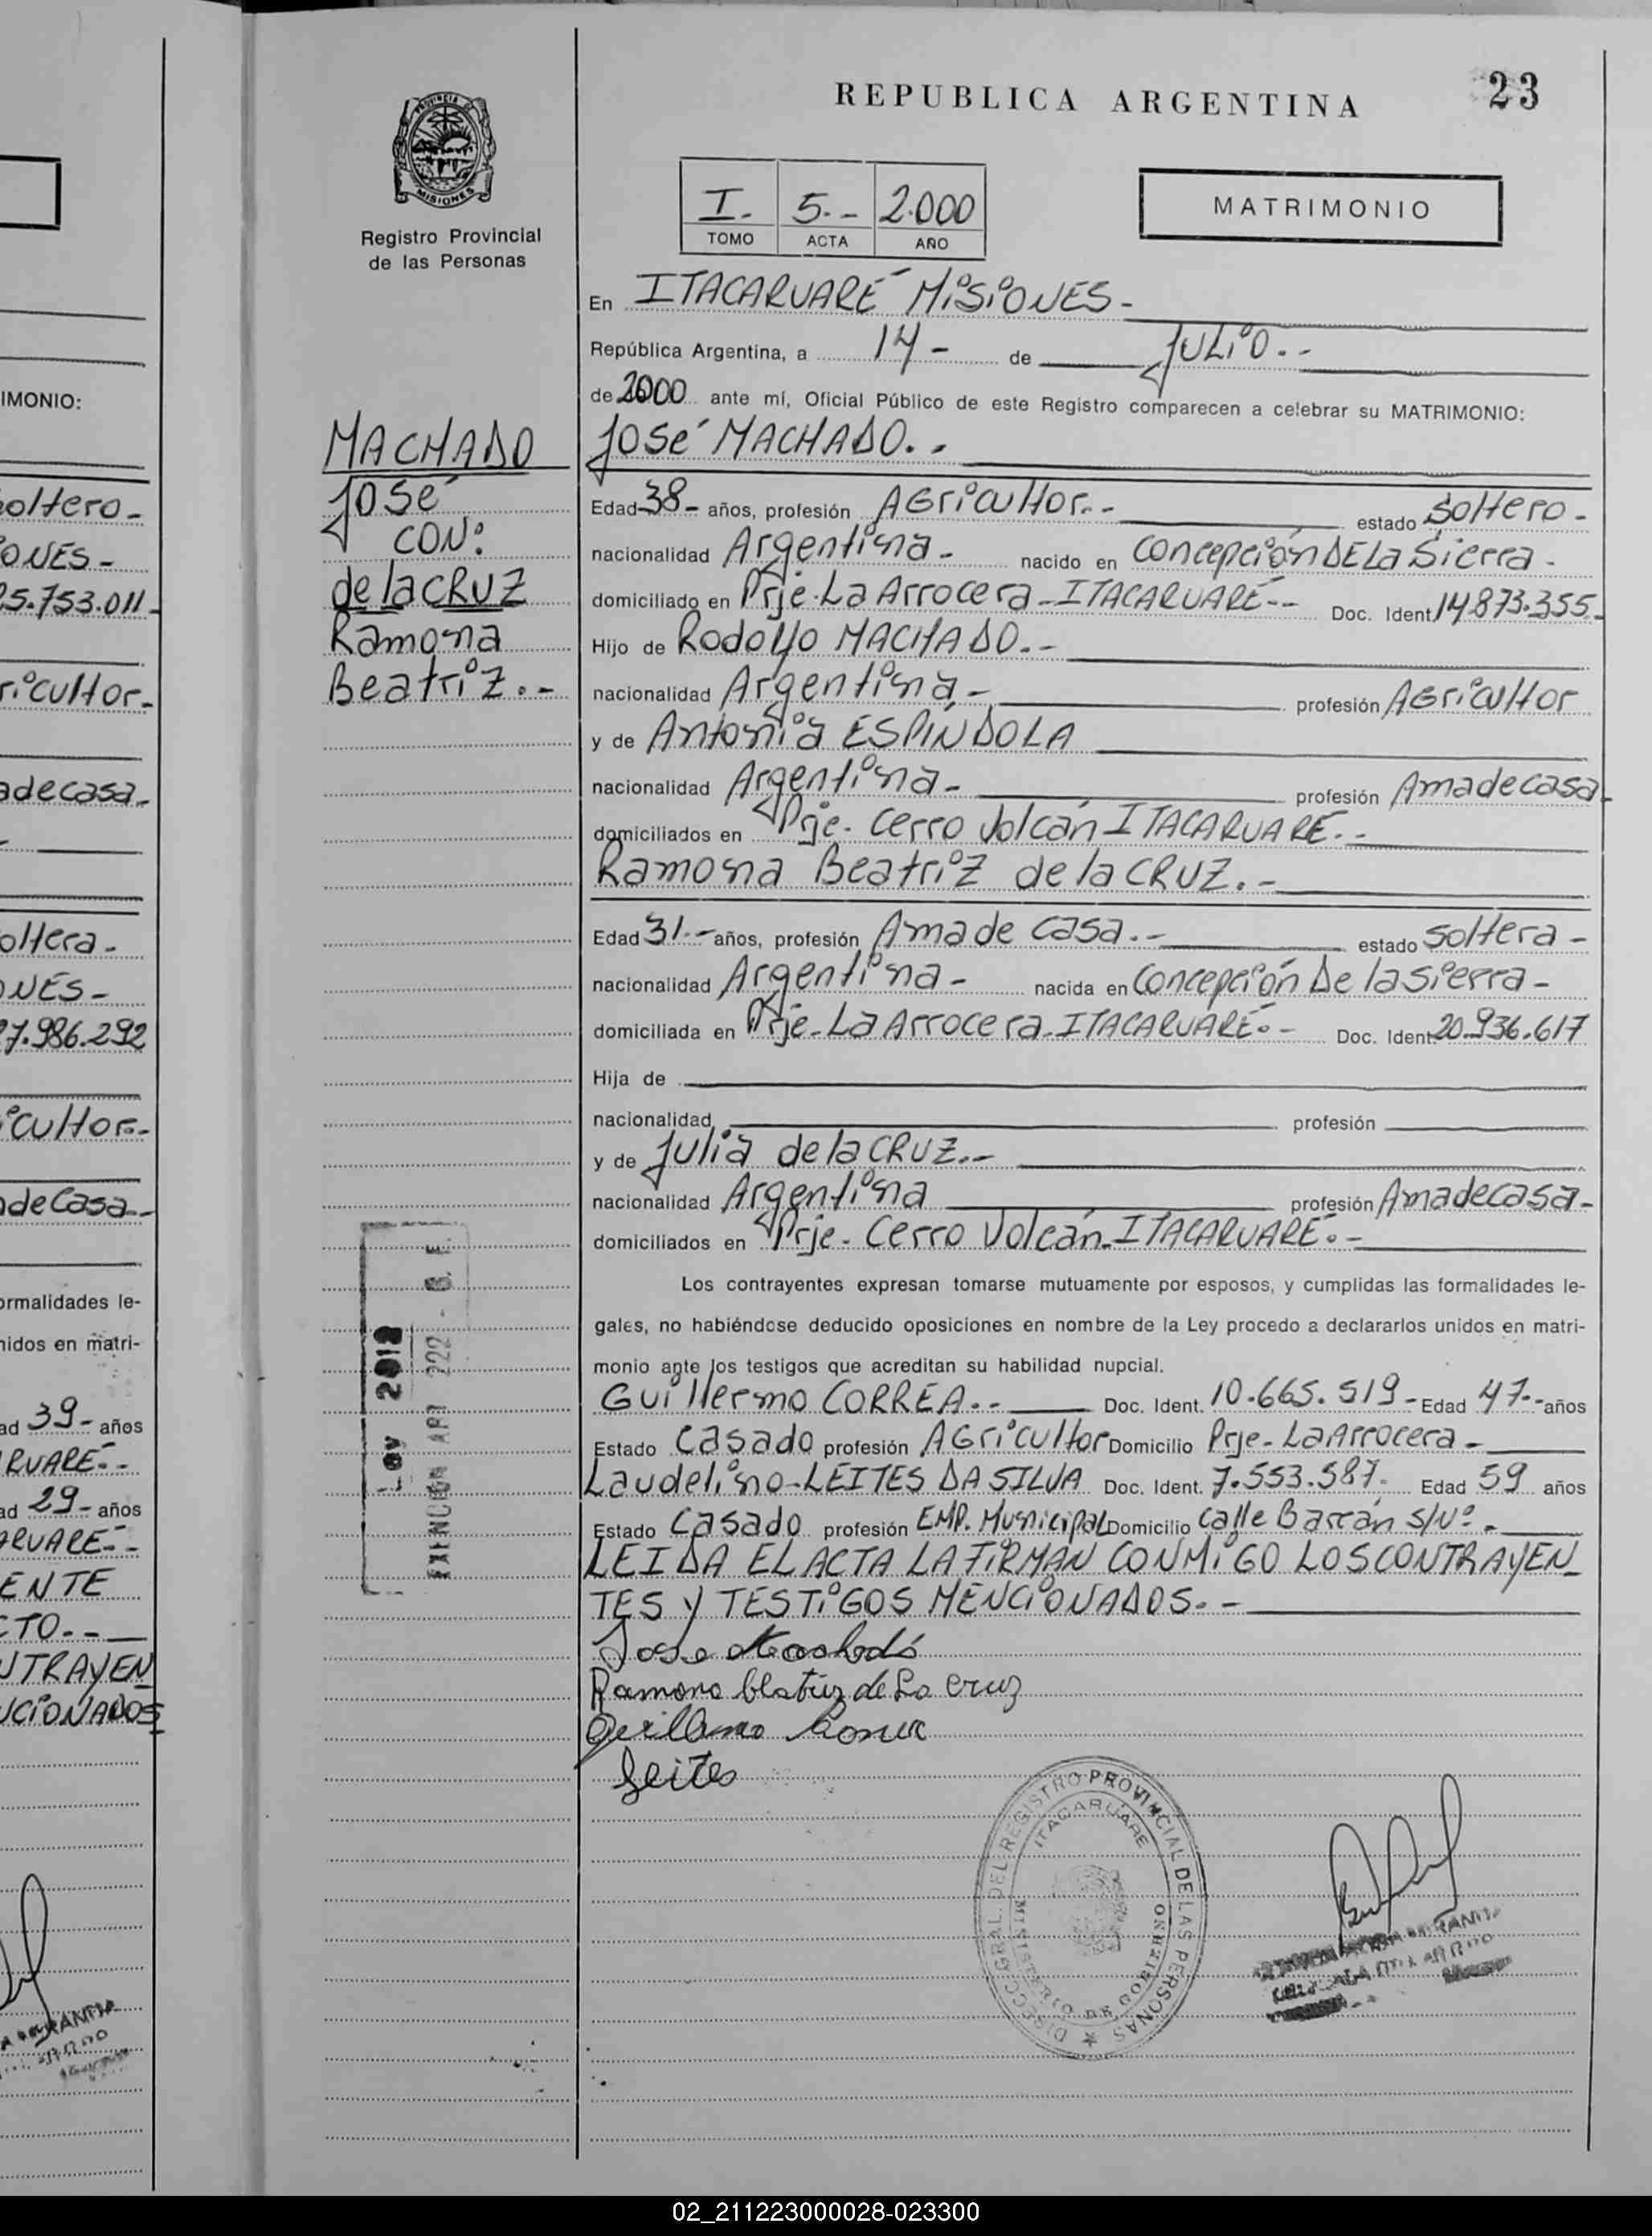 REPUBLICA ARGENTINA
23
PROVINCIA DE
MISIONES
Registro Provincial
de las Personas
I.- 5.-- 2.000
TOMO ACTA AÑO
MATRIMONIO
En ITACARUARÉ MISIONES-
República Argentina, a 14- de JULIO.--
de 2000 ante mí, Oficial Público de este Registro comparecen a celebrar su MATRIMONIO:
MACHADO
José
CON:
de la CRUZ
Ramona
Beatriz.-
José MACHADO.-
Edad 38- años, profesión Agricultor.-- estado Soltero-
nacionalidad Argentina- nacido en Concepción DE La Sierra-
domiciliado en Prje. La Arrocera-ITACARUARÉ-- Doc. Ident. 14.873.355-
Hijo de Rodolfo MACHADO.--
nacionalidad Argentina- profesión Agricultor
y de Antonia ESPÍNDOLA
nacionalidad Argentina- profesión Ama de casa-
domiciliados en Prje. Cerro Volcán ITACARUARÉ.--
Ramona Beatriz de la CRUZ.-
Edad 31.- años, profesión Ama de casa.-- estado Soltera-
nacionalidad Argentina- nacida en Concepción De la Sierra-
domiciliada en Prje. La Arrocera-ITACARUARÉ.- Doc. Ident. 20.936.617
Hija de
nacionalidad profesión
y de Julia de la CRUZ.--
nacionalidad Argentina profesión Ama de casa-
domiciliados en Prje. Cerro Volcán-ITACARUARÉ.-
Los contrayentes expresan tomarse mutuamente por esposos, y cumplidas las formalidades le-
gales, no habiéndose deducido oposiciones en nombre de la Ley procedo a declararlos unidos en matri-
monio ante los testigos que acreditan su habilidad nupcial.
Guillermo CORREA.-- Doc. Ident. 10.665.519- Edad 47.- años
Estado Casado profesión Agricultor Domicilio Prje- La Arrocera-
Laudelino-LEITES DA SILVA Doc. Ident. 7.553.587- Edad 59 años
Estado Casado profesión EMP. Municipal Domicilio Calle Barrán S/Nº-
LEIDA EL ACTA LA FIRMAN CONMIGO LOS CONTRAYEN-
TES Y TESTIGOS MENCIONADOS.-
Jose Machado
Ramona Beatriz de La Cruz
Guillermo Correa
Leites
2018
EXENCION ART 222 - G. E.
DIRECC. GRAL. DEL REGISTRO PROVINCIAL DE LAS PERSONAS
ITACARUARE
MINISTERIO DE GOBIERNO
IMONIO:
soltero-
ONES-
25.753.011-
ricultor-
adecasa-
oltera-
ONES-
27.986.292
icultor-
adecasa-
ormalidades le-
nidos en matri-
ad 39- años
RUARE--
ad 29- años
ARUARE--
ENTE
CTO.--
NTRAYEN
NCIONADOS
02_211223000028-023300